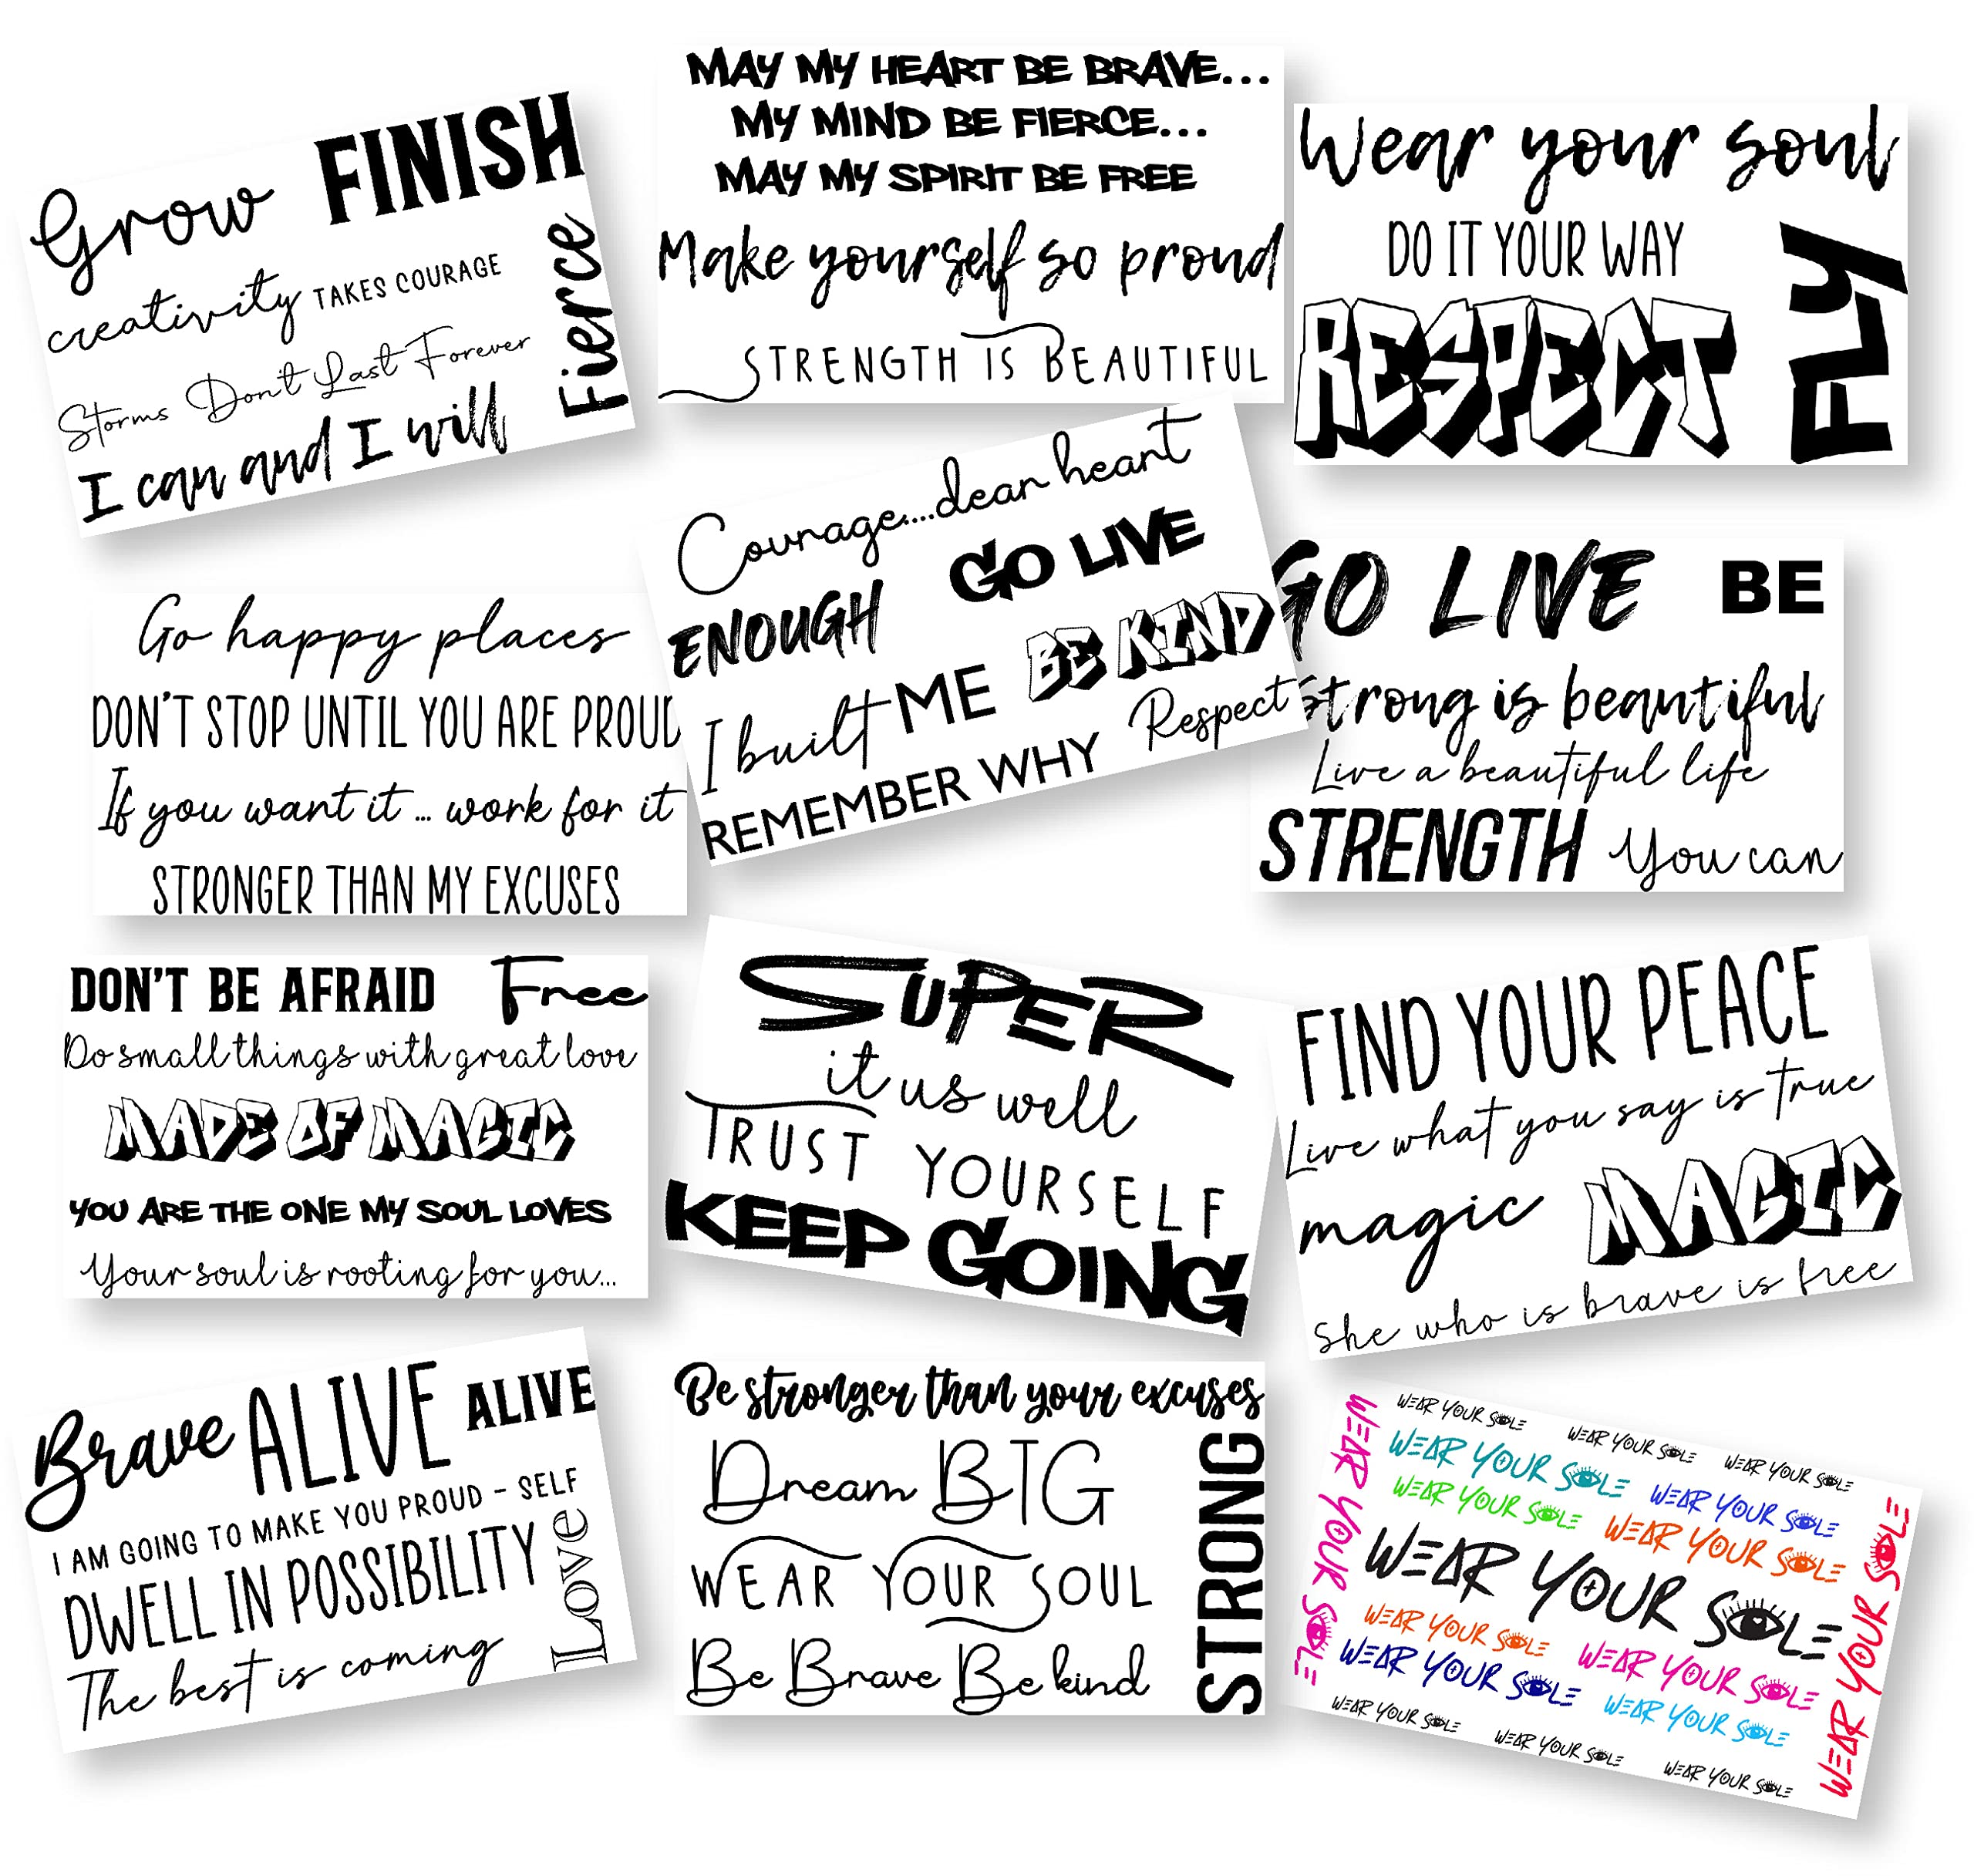 Grow FINISH
creativity TAKES COURAGE
Storms Don't Last Forever
I can and I will
Fierce
MAY MY HEART BE BRAVE...
MY MIND BE FIERCE...
MAY MY SPIRIT BE FREE
Make yourself so proud
STRENGTH IS BEAUTIFUL
Wear your soul
DO IT YOUR WAY
RESPECT
FLY
Go happy places
DON'T STOP UNTIL YOU ARE PROUD
If you want it ... work for it
STRONGER THAN MY EXCUSES
Courage....dear heart
ENOUGH GO LIVE
I built ME BE KIND
REMEMBER WHY Respect
GO LIVE BE
Strong is beautiful
Live a beautiful life
STRENGTH You can
DON'T BE AFRAID Free
Do small things with great love
MADE OF MAGIC
YOU ARE THE ONE MY SOUL LOVES
Your soul is rooting for you...
SUPER
it us well
TRUST YOURSELF
KEEP GOING
FIND YOUR PEACE
Live what you say is true
magic MAGIC
She who is brave is free
Brave ALIVE ALIVE
I AM GOING TO MAKE YOU PROUD - SELF
DWELL IN POSSIBILITY
The best is coming
Love
Be stronger than your excuses
Dream BIG
WEAR YOUR SOUL
Be Brave Be kind
STRONG
WEAR YOUR SOLE
WEAR YOUR SOLE
WEAR YOUR SOLE
WEAR YOUR SOLE
WEAR YOUR SOLE
WEAR YOUR SOLE
WEAR YOUR SOLE
WEAR YOUR SOLE
WEAR YOUR SOLE
WEAR YOUR SOLE
WEAR YOUR SOLE
WEAR YOUR SOLE
WEAR YOUR SOLE
WEAR YOUR SOLE
WEAR YOUR SOLE
WEAR YOUR SOLE
WEAR YOUR SOLE